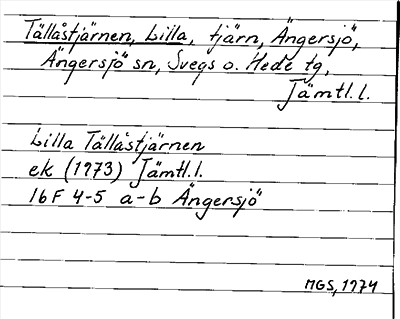 Tällåstjärnen, Lilla, tjärn, Ängersjö,
Ängersjö sn, Svegs o. Hede tg,
Jämtl.l.
Lilla Tällåstjärnen
ek (1973) Jämtl.l.
16F 4-5 a-b Ängersjö
MGS, 1974